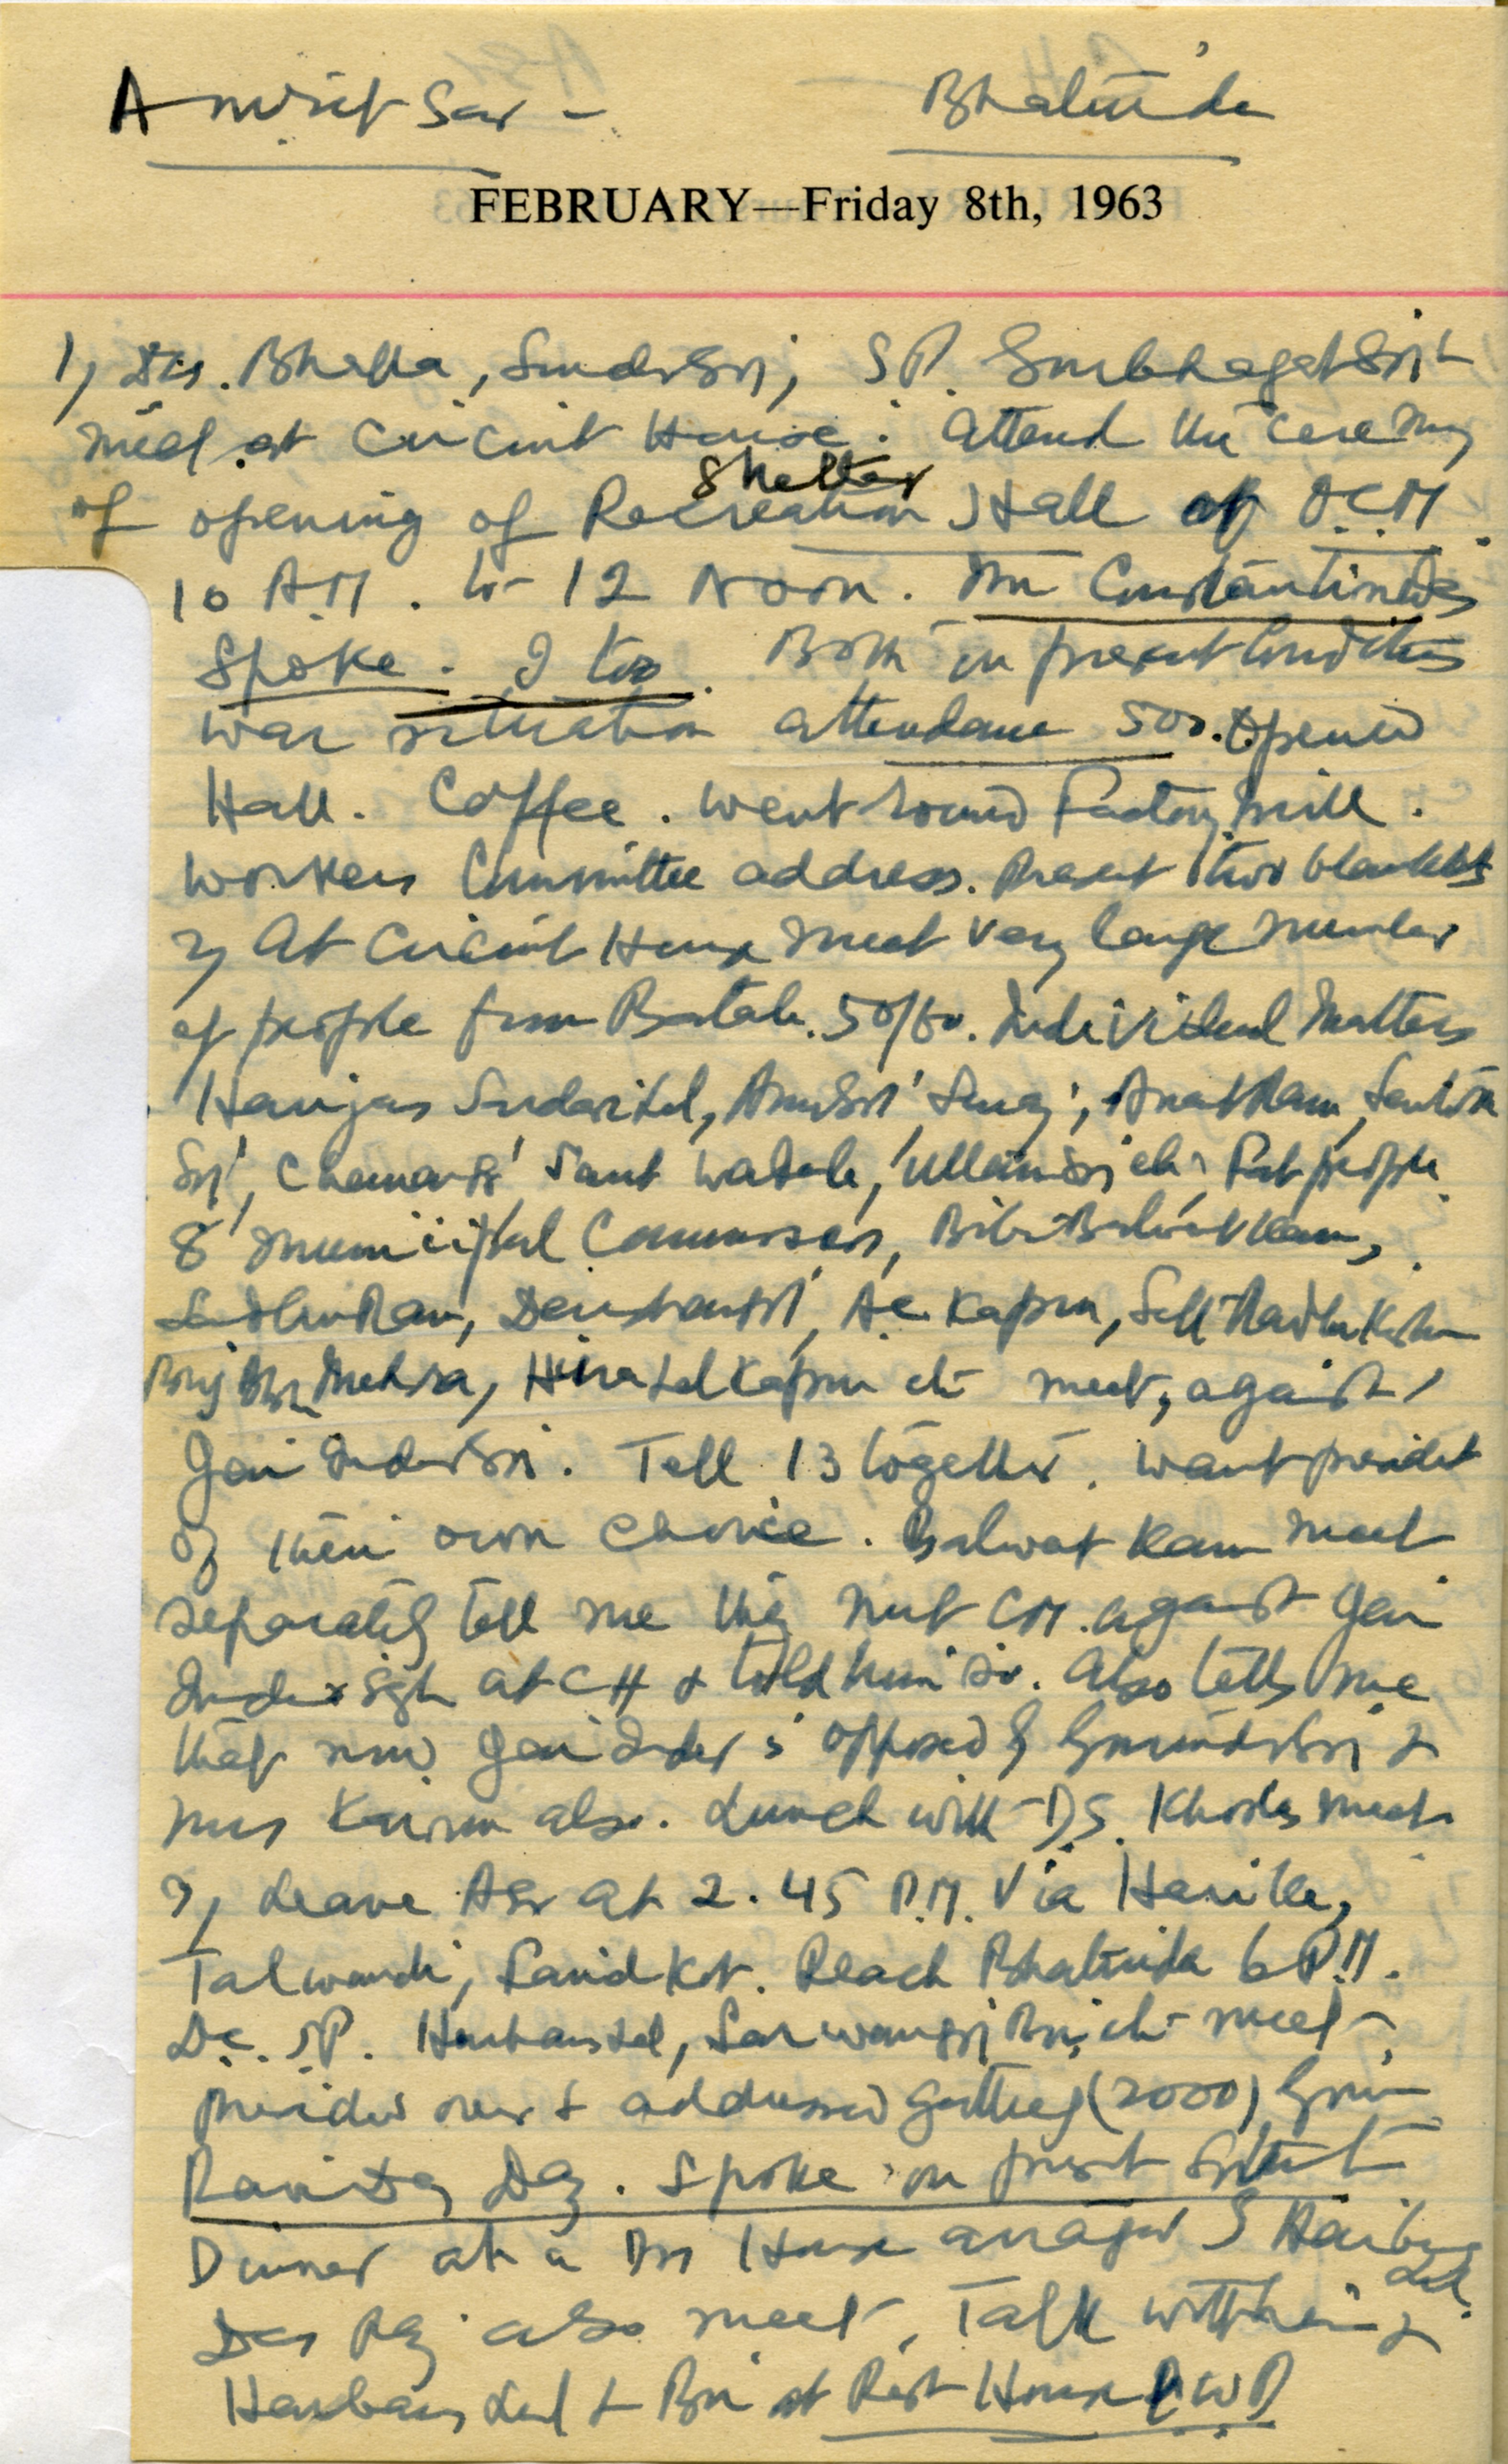 Amritsar - Bhatinda
FEBRUARY—Friday 8th, 1963
1) Bhalla, S.P. Gurbhagat
meet at Circuit House. Attend the ceremony
of opening of Recreation Shelter Hall of O.C.M.
10 A.M. to 12 Noon. Mr Constantinides
Spoke. I too. Both on present conditions
war situation attendance 500. Opened
Hall. Coffee. Went round Factory mill.
Workers Committee address. Present two blankets
2) At Circuit House meet very large number
of people from Batala. 50/60. Individual matters
Harijans Sundar Lal, Anat Ram,
Sant
8 Municipal Commissioners, Bibi Balwant Kaur,
Kapur, Seth Radha Kishan
Brij Mehra, Hira Lal Kapur etc meet, against
Giani Inder Tell 13 together. Want president
of their own choice. Balwant Kaur meet
separately tell me they met CM. against Giani
Inder Sgh at CH & told him so. Also tells me
that now Giani Inder is opposed by &
Mrs Kairon also. Lunch with D.S. meet.
3) Leave Asr at 2.45 P.M. Via Harike,
Talwandi, Faridkot. Reach Bhatinda 6 P.M.
D.C. S.P. Harbans Lal, etc meet
presided over & addressed gathering (2000) Guru
Ravi Das Day. Spoke on present
Dinner at a House arranged by Harbans Lal.
Das also meet. Talk with him &
Harbans Lal & at Rest House P.W.D